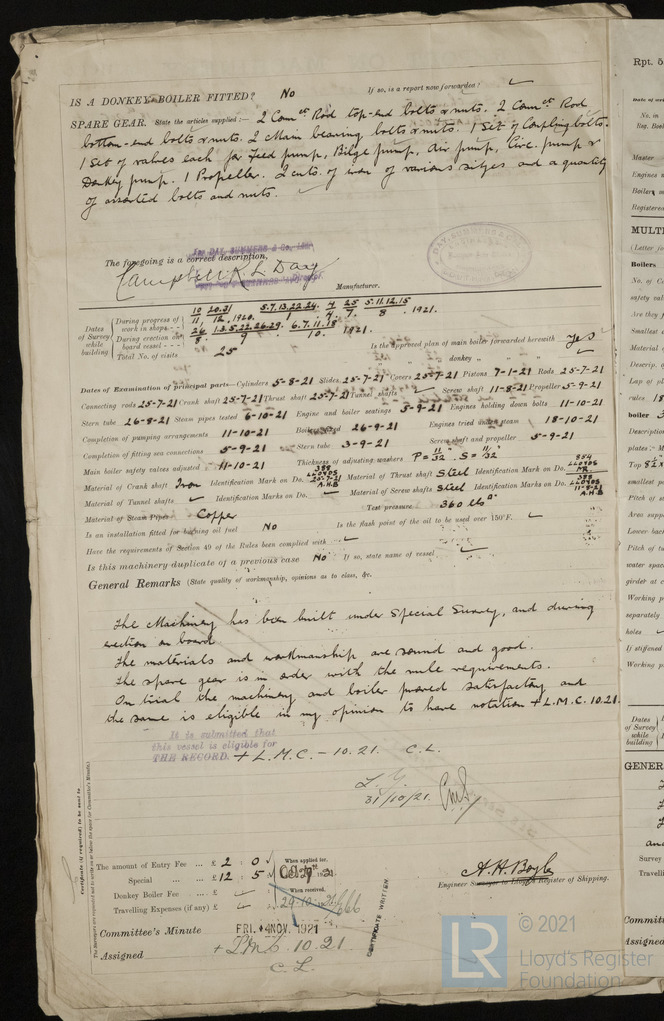 IS A DONKEY BOILER FITTED? No If so, is a report now forwarded? ✓
SPARE GEAR. State the articles supplied:— 2 Connct Rod top-end bolts & nuts. 2 Connct Rod
bottom-end bolts & nuts. 2 Main bearing bolts & nuts. 1 Set of Coupling bolts.
1 Set of valves each for Feed pump, Bilge pump, Air pump, Circ. pump &
Donkey pump. 1 Propeller. 2 cwts. of iron of various sizes and a quantity
of assorted bolts and nuts.
For DAY, SUMMERS & Co. Ltd.
The foregoing is a correct description,
Campbell K. L. Day
Director
Manufacturer.
Dates of Survey while building
During progress of work in shops - - 10/11 20.31/12. 1920. 5.7.13.22.24./1 4/4 25/7. 5.11.12.15/8 . 1921.
During erection on board vessel - - - 26/8. 1.3.5.22.26.29./9 6.7.11.18/10. 1921.
Total No. of visits 25
Is the approved plan of main boiler forwarded herewith Yes
" " " donkey " " " ✓
Dates of Examination of principal parts—Cylinders 5-8-21 Slides 25-7-21 Covers 25-7-21 Pistons 7-1-21 Rods 25-7-21
Connecting rods 25-7-21 Crank shaft 25-7-21 Thrust shaft 25-7-21 Tunnel shafts ✓ Screw shaft 11-8-21 Propeller 5-9-21
Stern tube 26-8-21 Steam pipes tested 6-10-21 Engine and boiler seatings 3-9-21 Engines holding down bolts 11-10-21
Completion of pumping arrangements 11-10-21 Boilers fixed 26-9-21 Engines tried under steam 18-10-21
Completion of fitting sea connections 5-9-21 Stern tube 3-9-21 Screw shaft and propeller 5-9-21
Main boiler safety valves adjusted 11-10-21 Thickness of adjusting washers P = 11/32 . S = 11/32
Material of Crank shaft Iron Identification Mark on Do. 388 LLOYDS 25-7-21 A.H.B Material of Thrust shaft Steel Identification Mark on Do. 854 LLOYDS
Material of Tunnel shafts ✓ Identification Marks on Do. ✓ Material of Screw shafts Steel Identification Marks on Do. 388 LLOYDS 11-8-21 A.H.B
Material of Steam Pipes Copper Test pressure 360 lbs
Is an installation fitted for burning oil fuel No Is the flash point of the oil to be used over 150°F. ✓
Have the requirements of Section 49 of the Rules been complied with ✓
Is this machinery duplicate of a previous case No If so, state name of vessel ✓
General Remarks (State quality of workmanship, opinions as to class, &c.
The Machinery has been built under Special Survey, and during
erection on board
The materials and workmanship are sound and good.
The spare gear is in order with the rule requirements.
On trial the machinery and boiler proved satisfactory and
the same is eligible in my opinion to have notation + L.M.C. 10.21.
It is submitted that
this vessel is eligible for
THE RECORD. + L.M.C. – 10.21. C.L.
31/10/21.
Certificate (if required) to be sent to
The amount of Entry Fee ... £ 2 : 0 When applied for,
Special ... £ 12 : 5
Donkey Boiler Fee ... £ ✓ When received,
Travelling Expenses (if any) £ ✓ 29.10.21
A. H. Boyle
Engineer Surveyor to Lloyd's Register of Shipping.
Committee's Minute FRI. 4 NOV. 1921
Assigned + LMC 10.21
C.L.
CERTIFICATE WRITTEN
© 2021
LR
Lloyd's Register
Foundation
Rpt. 5
Master
MULTI
Boilers
GENER